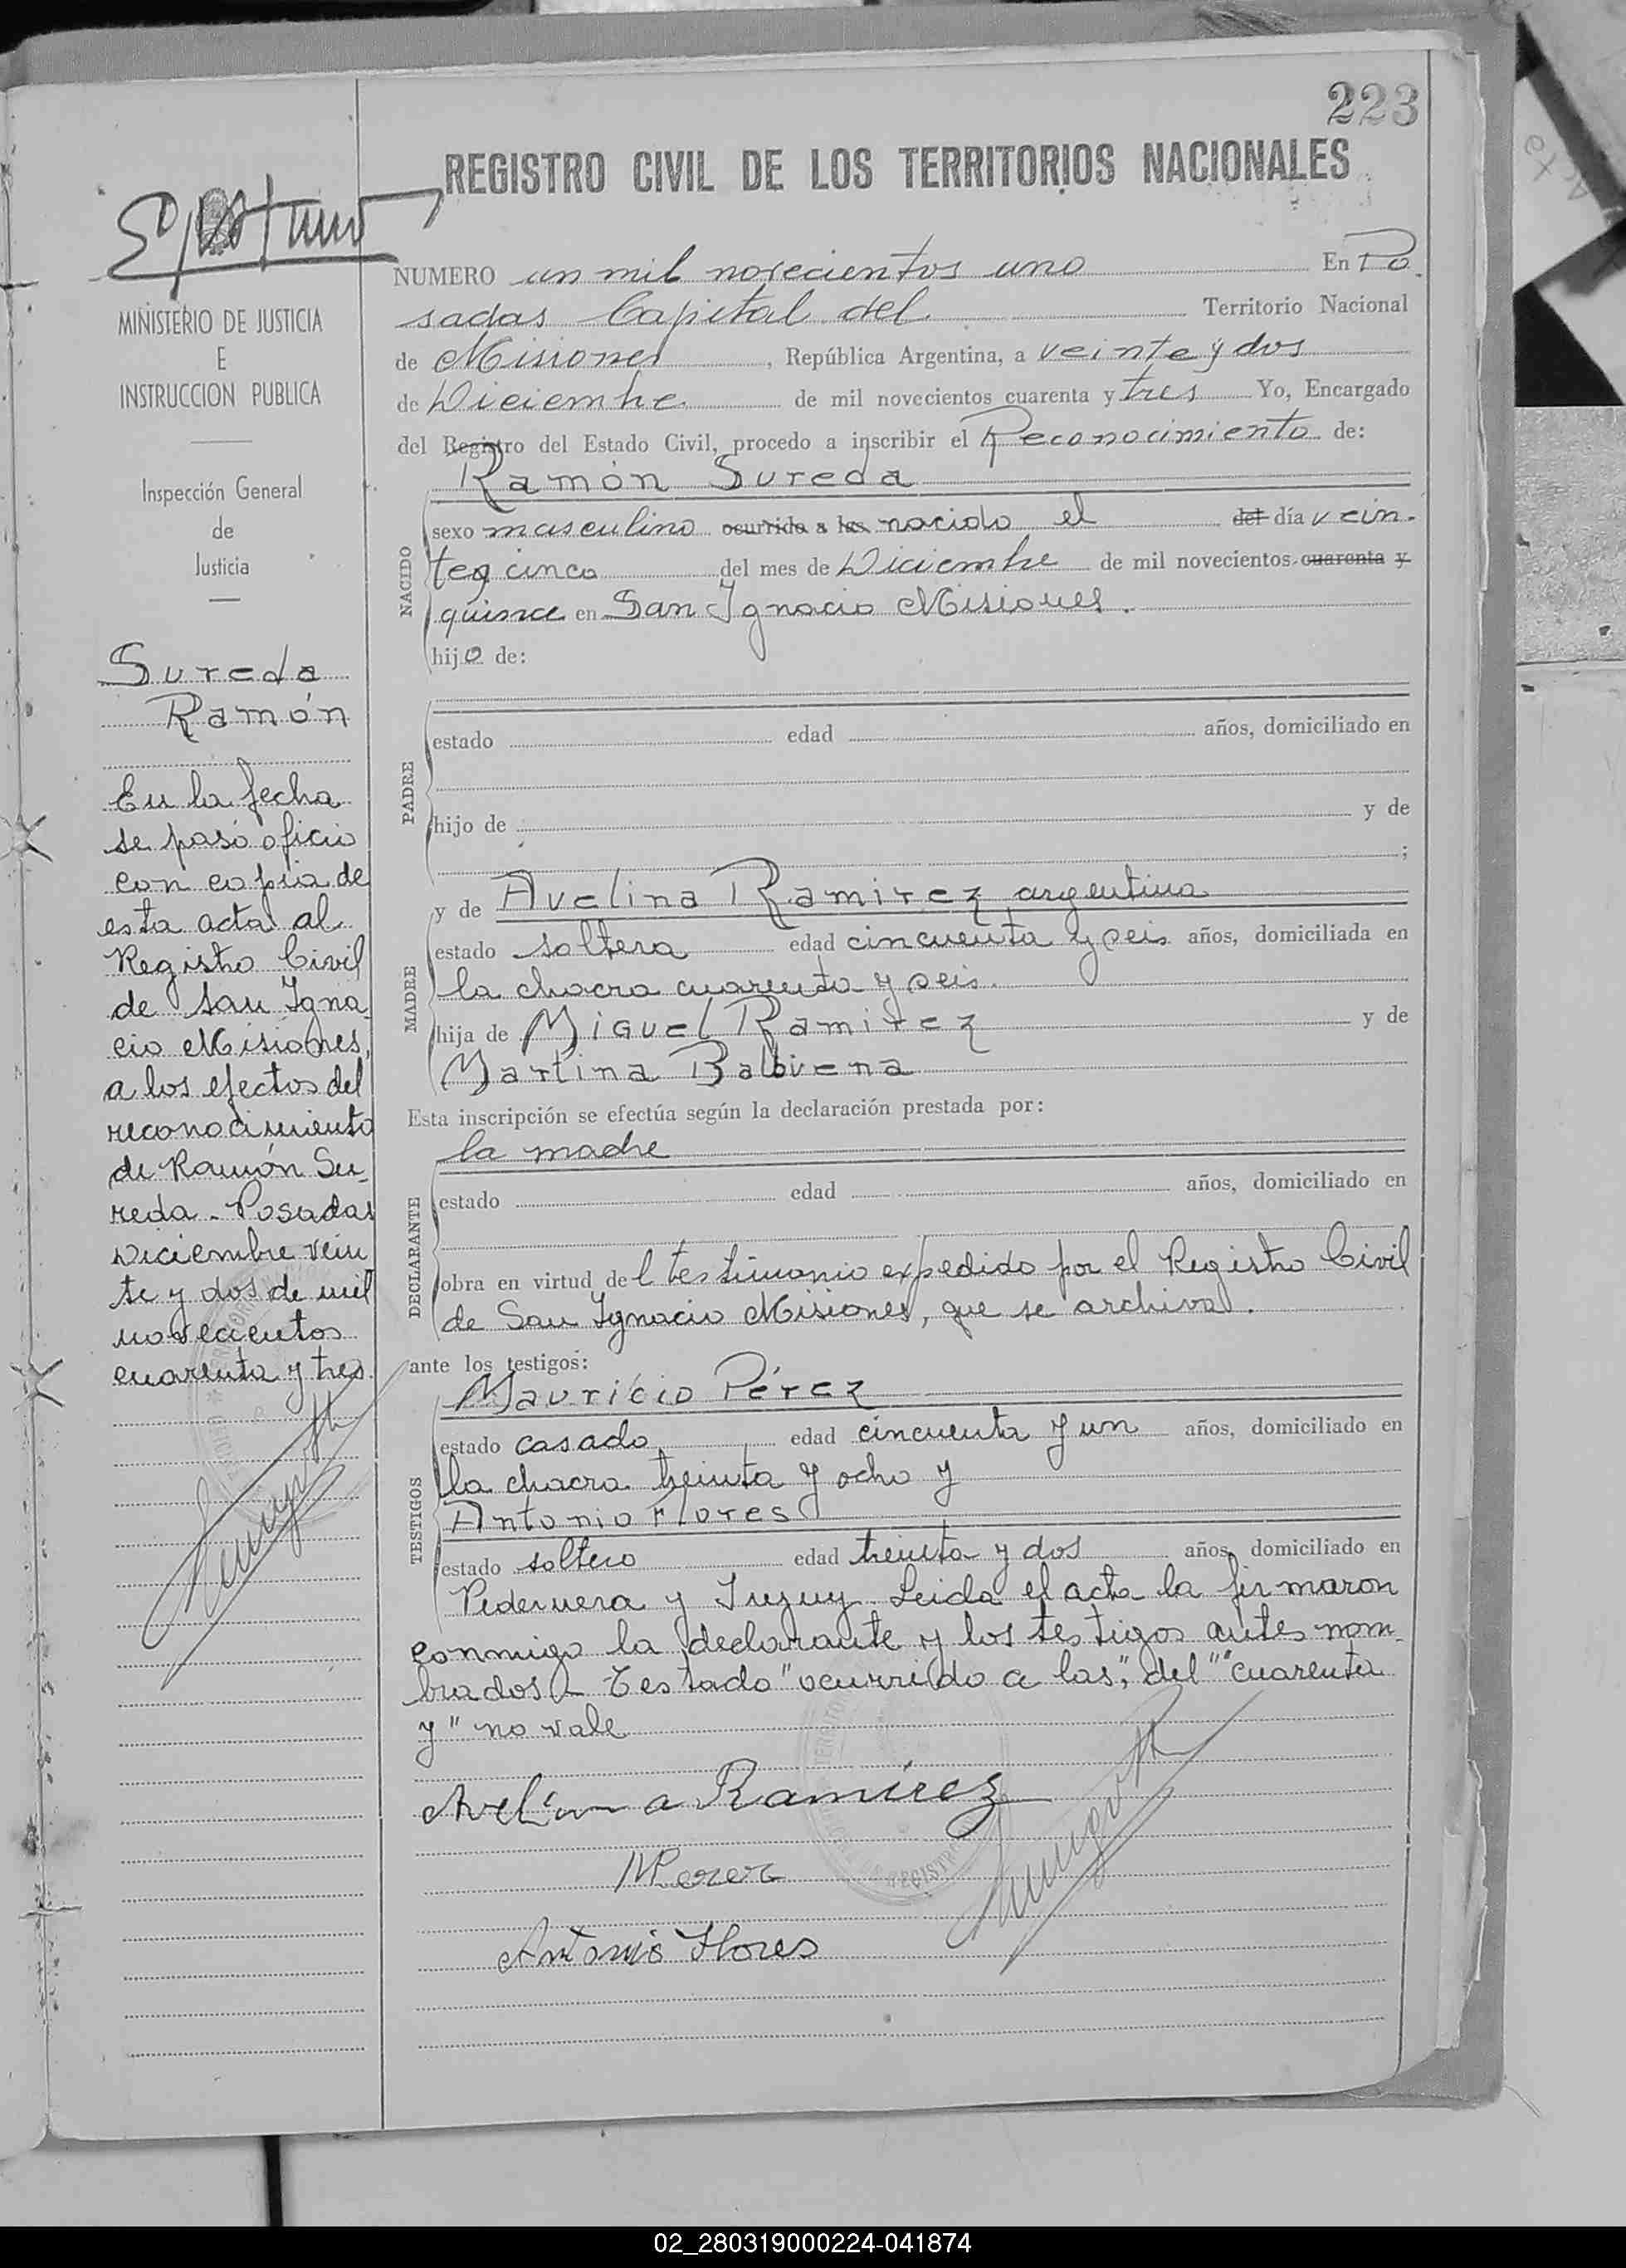 223
REGISTRO CIVIL DE LOS TERRITORIOS NACIONALES
MINISTERIO DE JUSTICIA
E
INSTRUCCION PUBLICA
Inspección General
de
Justicia
Sureda
Ramón
En la fecha
se pasó oficio
con copia de
esta acta al
Registro Civil
de San Igna_
cio Misiones,
a los efectos del
reconocimiento
de Ramón Su_
reda - Posadas
Diciembre vein
te y dos de mil
novecientos
cuarenta y tres
NUMERO un mil novecientos uno En Po_
sadas Capital del Territorio Nacional
de Misiones, República Argentina, a veinte y dos
de Diciembre de mil novecientos cuarenta y tres Yo, Encargado
del Registro del Estado Civil, procedo a inscribir el Reconocimiento de:
Ramón Sureda
NACIDO
sexo masculino ocurrido a las nacido el del día vein-
te y cinco del mes de Diciembre de mil novecientos cuarenta y
quince en San Ignacio Misiones.
hijo de:
PADRE
estado edad años, domiciliado en
hijo de y de
;
y de Avelina Ramirez argentina
MADRE
estado soltera edad cincuenta y seis años, domiciliada en
la chacra cuarenta y seis.
hija de Miguel Ramirez y de
Martina Balbuena
Esta inscripción se efectúa según la declaración prestada por:
la madre
DECLARANTE
estado edad años, domiciliado en
obra en virtud del testimonio expedido por el Registro Civil
de San Ignacio Misiones, que se archiva.
ante los testigos:
Mauricio Pérez
TESTIGOS
estado casado edad cincuenta y un años, domiciliado en
la chacra treinta y ocho y
Antonio Flores
estado soltero edad treinta y dos años, domiciliado en
Pedernera y Jujuy. Leida el acta la firmaron
conmigo la declarante y los testigos antes nom_
brados - Testado "ocurrido a las", del" "cuarenta
y" no vale
Avelina Ramírez
MPerez
Antonio Flores
02_280319000224-041874